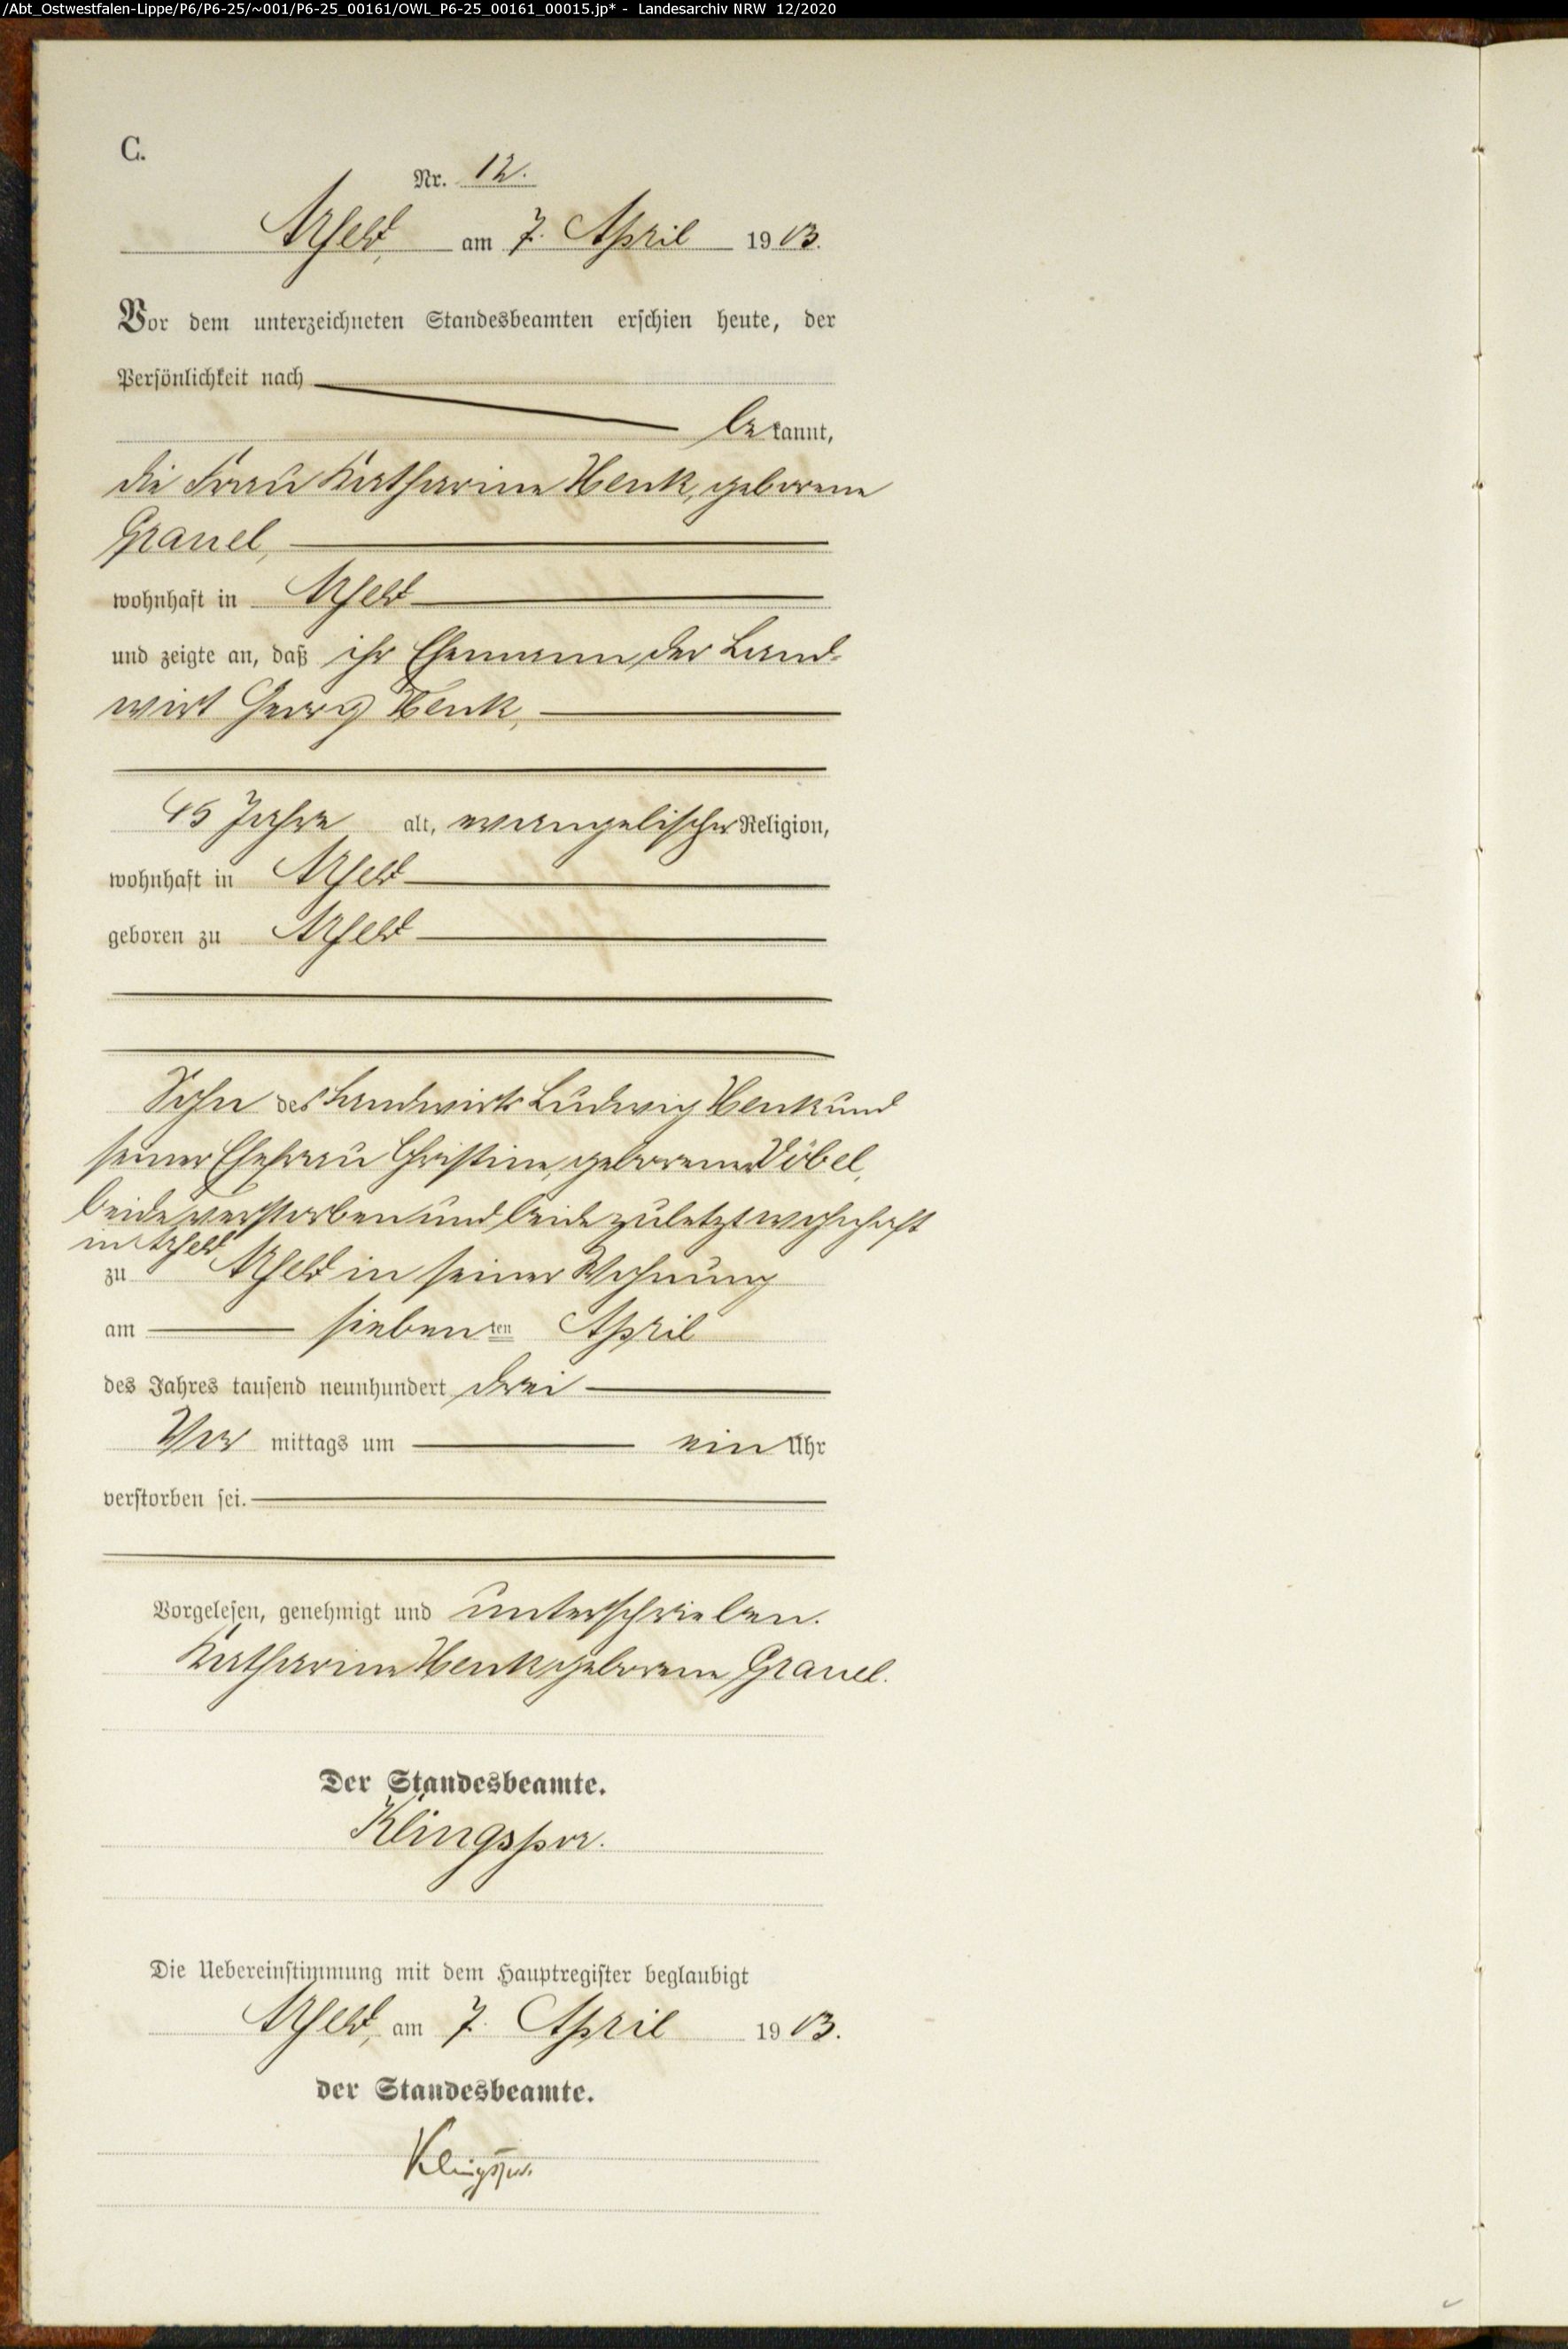 /Abt_Ostwestfalen-Lippe/P6/P6-25/~001/P6-25_00161/OWL_P6-25_00161_00015.jp* - Landesarchiv NRW 12/2020
C.
Nr. 12.
Arfeld, am 7. April 1903.
Vor dem unterzeichneten Standesbeamten erschien heute, der
Persönlichkeit nach
bekannt,
die Frau Katharine Henk, geborene
Grauel,
wohnhaft in Arfeld
und zeigte an, daß ihr Ehemann, der Land-
wirt Georg Henk,
45 Jahre alt, evangelischer Religion,
wohnhaft in Arfeld
geboren zu Arfeld
Sohn des Landwirts Ludwig Henk und
seiner Ehefrau Christine, geborenen Döbel,
beide verstorben und beide zuletzt wohnhaft
in Arfeld
zu Arfeld in seiner Wohnung
am siebenten April
des Jahres tausend neunhundert drei
Vor mittags um ein Uhr
verstorben sei.
Vorgelesen, genehmigt und unterschrieben.
Katharine Henk geborene Grauel.
Der Standesbeamte.
Klingspor.
Die Uebereinstimmung mit dem Hauptregister beglaubigt
Arfeld, am 7. April 1903.
der Standesbeamte.
Klingspor.